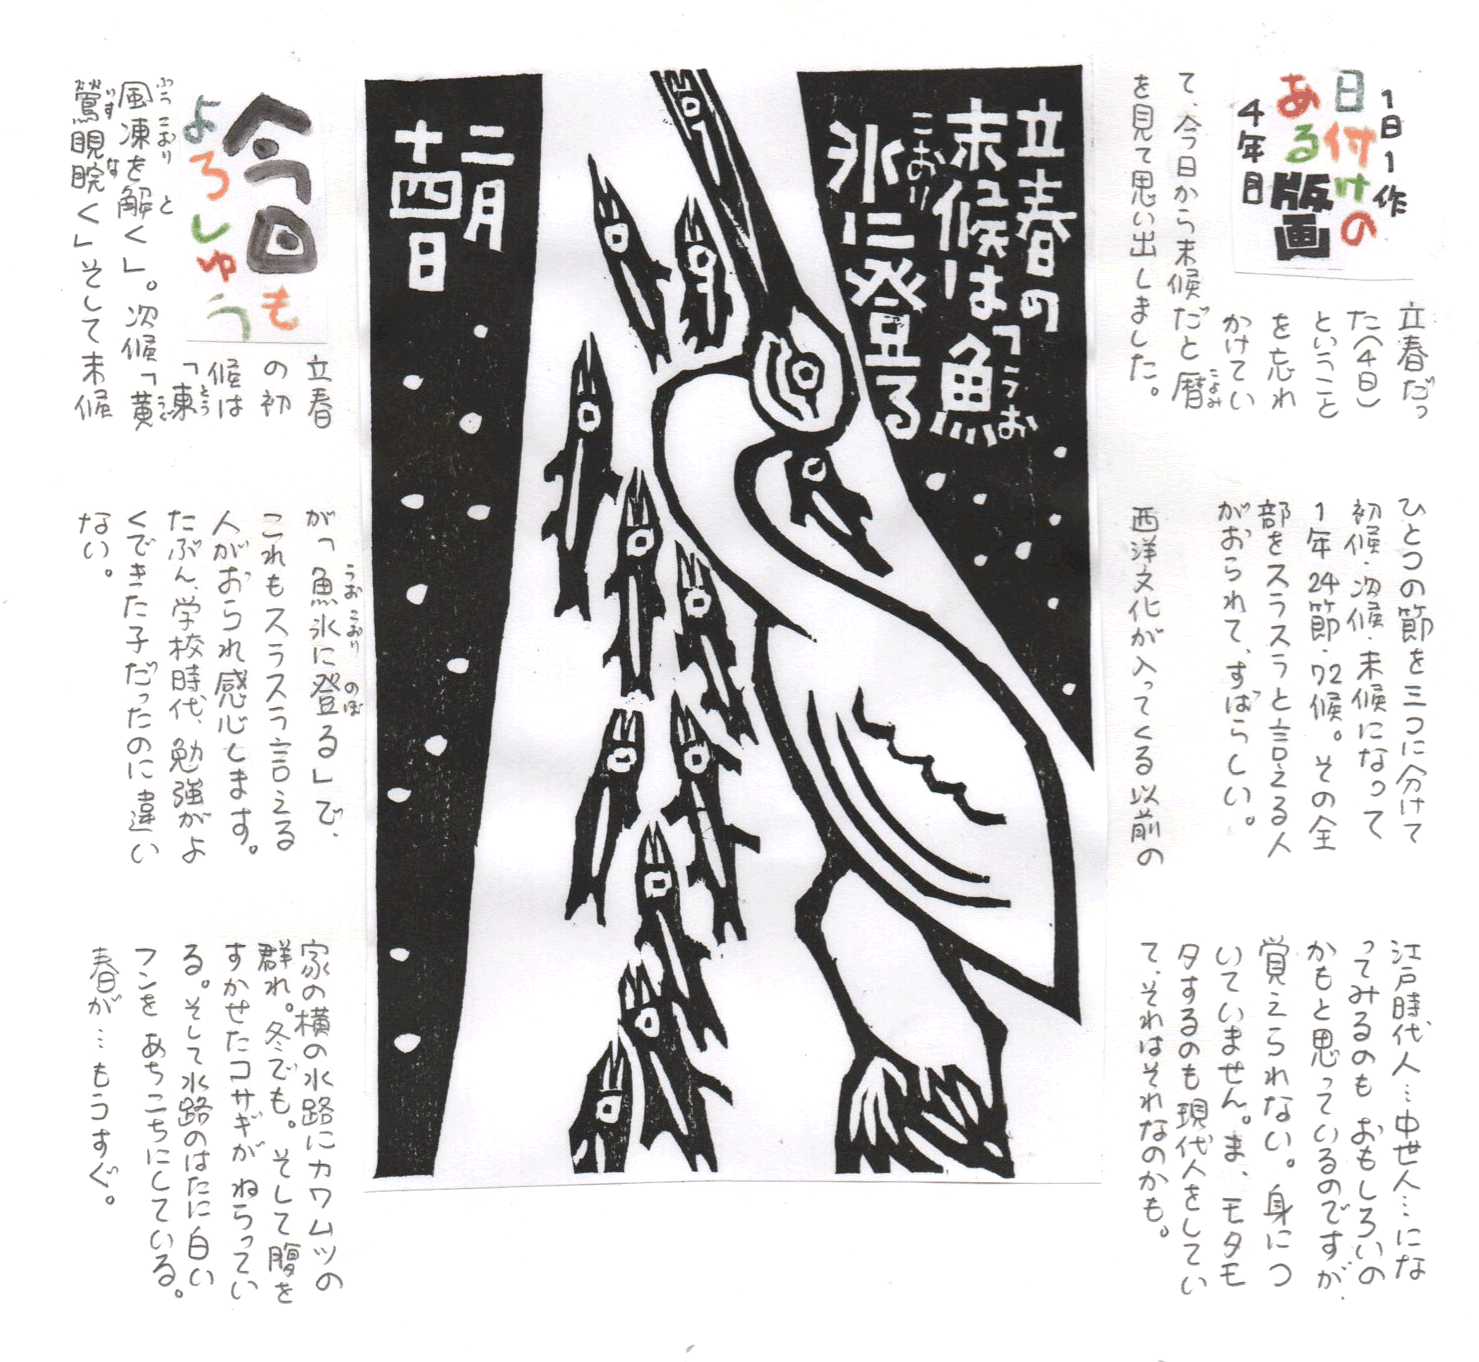 1日1作
日付けの
ある版画
4年目
立春だっ
た(4日)
ということ
を忘れ
かけてい
て、今日から末候だと暦
こよみ
を見て思い出しました。
ひとつの節を三つに分けて
初候・次候・末候になって
1年24節・72候。その全
部をスラスラと言える人
がおられて、すばらしい。
西洋文化が入ってくる以前の
江戸時代人…中世人…にな
ってみるのもおもしろいの
かもと思っているのですが、
覚えられない。身につ
いていません。ま、モタモ
タするのも現代人をしてい
て、それはそれなのかも。
立春の
末候は「魚
うお
こおり
氷に登る
二月
十四日
今日も
よろしゅう
立春
の初
候は
「東
とう
ふうこおりと
風凍を解く」。次候「黄
うぐ
いすな
鶯睍睆く」そして末候
が「魚氷に登る」で、
うおこおりのぼ
これもスラスラ言える
人がおられ感心します。
たぶん、学校時代、勉強がよ
くできた子だったのに違い
ない。
家の横の水路にカワムツの
群れ。冬でも。そして腹を
すかせたコサギがねらってい
る。そして水路のはたに白い
フンをあちこちにしている。
春が…もうすぐ。